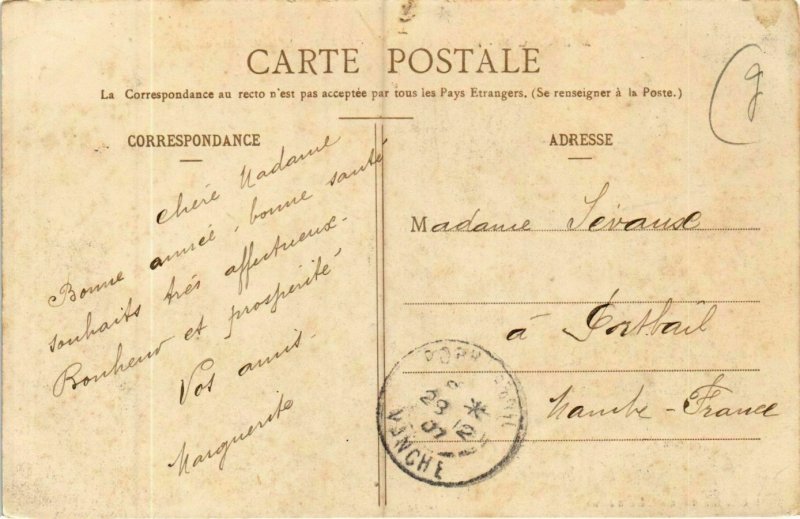 CARTE POSTALE
La Correspondance au recto n'est pas acceptée par tous les Pays Etrangers. (Se renseigner à la Poste.)
CORRESPONDANCE
chère Madame
Bonne année, bonne santé
souhaits très affectueux.
Bonheur et prospérité
Vos amis.
Marguerite
ADRESSE
Madame
à Portbail
Manche - France
29 12
07
MANCHE
g